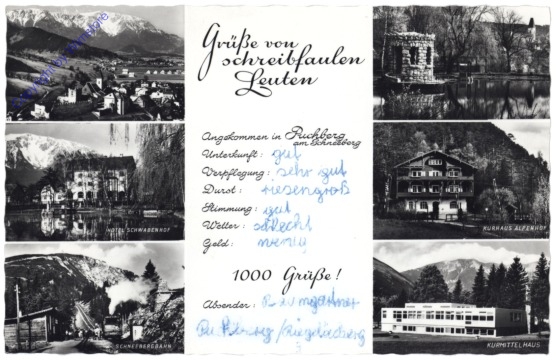 Grüße von
schreibfaulen
Leuten
Angekommen in Puchberg
am Schneeberg
Unterkunft: gut
Verpflegung: sehr gut
Durst: riesengroß
Stimmung: gut
Wetter: schlecht
Geld: wenig
1000 Grüße!
Absender:
HOTEL SCHWABENHOF
SCHNEEBERGBAHN
KURHAUS ALPENHOF
KURMITTELHAUS